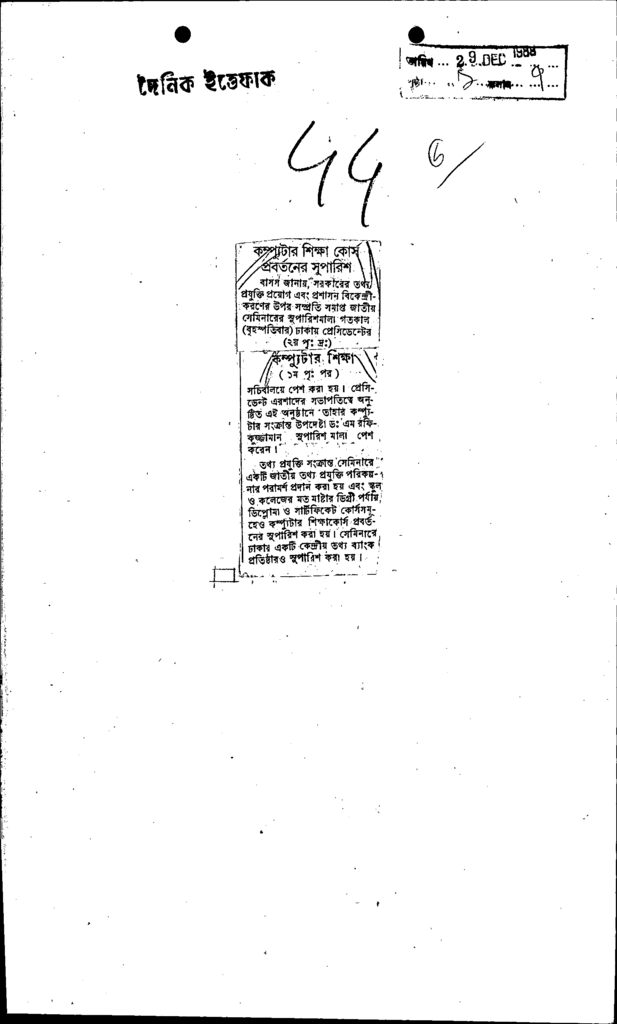 দৈনিক ইত্তেফাক
তারিখ ... 29 DEC 1988 ...
পৃষ্ঠা ... ... কলাম ... ...
কম্প্যুটার শিক্ষা কোর্স
প্রবর্তনের সুপারিশ
বাসস জানায়, সরকারের তথ্য
প্রযুক্তি প্রয়োগ এবং প্রশাসন বিকেন্দ্রী-
করণের উপর সম্প্রতি সমাপ্ত জাতীয়
সেমিনারের সুপারিশমালা গতকাল
(বৃহস্পতিবার) ঢাকায় প্রেসিডেন্টের
(২য় পৃঃ দ্রঃ)
কম্প্যুটার শিক্ষা
(১ম পৃঃ পর)
সচিবালয়ে পেশ করা হয়। প্রেসি-
ডেন্ট এরশাদের সভাপতিত্বে অনু-
ষ্ঠিত এই অনুষ্ঠানে তাহার কম্প্যু-
টার সংক্রান্ত উপদেষ্টা ডঃ এম রফি-
কুজ্জামান সুপারিশ মালা পেশ
করেন।
তথ্য প্রযুক্তি সংক্রান্ত সেমিনারে
একটি জাতীয় তথ্য প্রযুক্তি পরিকল্প-
নার পরামর্শ প্রদান করা হয় এবং স্কুল
ও কলেজের মত মাষ্টার ডিগ্রী পর্যায়,
ডিপ্লোমা ও সার্টিফিকেট কোর্সসমূ-
হেও কম্প্যুটার শিক্ষাকোর্স প্রবর্ত-
নের সুপারিশ করা হয়। সেমিনারে
ঢাকার একটি কেন্দ্রীয় তথ্য ব্যাংক
প্রতিষ্ঠারও সুপারিশ করা হয়।